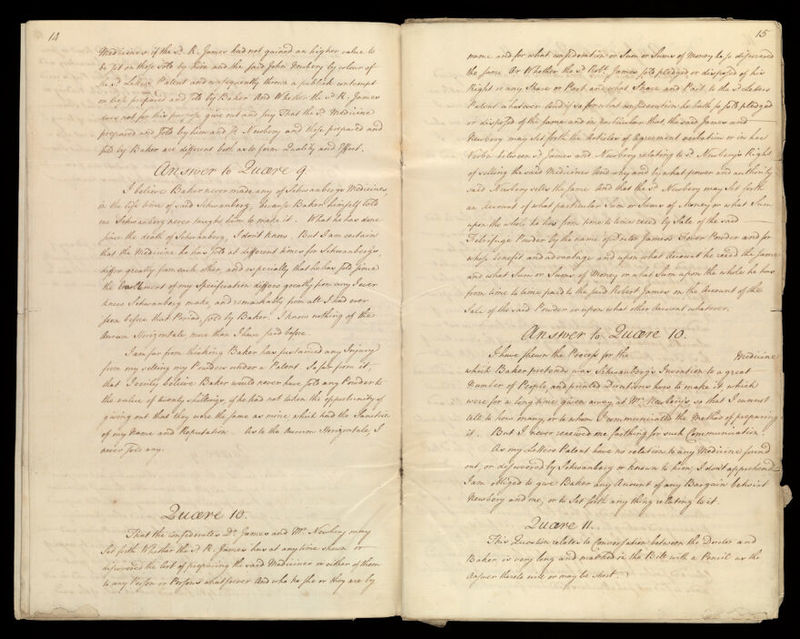 14
Medicines if the sd. R. James had not gained an higher value to
be set on those sold by him and the said John Newbery by colour of
the sd. Letters Patent and consequently thrown a publick contempt
on those prepared and sold by Baker And Whether the sd. R. James
does not for his purpose give out and say That the sd. Medicine
prepared and sold by him and J. Newbery and those prepared and
sold by Baker are different both as to form Quality and Effect.
Answer to Quære 9
I believe Baker never made any of Schwanberg's Medicines,
in the life time of said Schwanberg, because Baker himself told
me Schwanberg never taught him to make it. What he has done
since the death of Schwanberg, I don't know. But I am certain
that the Medicine he has sold at different times for Schwanberg's,
differ greatly from each other, and especially that he has sold since
the of my Specification differs greatly from any I ever
knew Schwanberg make, and remarkably from all I had ever
seen before that Period, sold by Baker. I know nothing of the
Aurum Horizontale more than I have said before.
I am far from thinking Baker has sustained any Injury
from my selling my Powders under a Patent. So far from it,
that I really believe Baker would never have sold any Powder to
the value of twenty shillings, if he had not taken the opportunity of
giving out that they were the same as mine which had the Sanction
of my Name and Reputation. As to the Aurum Horizontale, I
never sold any.
Quære 10.
That the Confederates Dr. James and Mr. Newbery may
Set forth Whether the sd. R. James has at any time shewn or
discovered the Art of preparing the said Medicines or either of them
to any Person or Persons whatsoever And who he she or they are by
15
name and for what consideration or Sum or Sums of Money he so discovered
the same Or Whether the sd. Robt. James sold pledged or disposed of his
Right or any Share or Part and what Share and Part to the sd. Letters
Patent whatever And if so for what consideration he hath so sold pledged
or disposed of the same and in particular that the said James and
Newbery may set forth the Articles of Agreement in writing or in her
Verba between sd. James and Newbery relating to sd. Newbery's Right
of selling the said Medicines and why and by what power and authority
said Newbery sells the same And that the sd. Newbery may Set forth
an Account of what particular Sum or Sums of Money or what Sum
upon the whole he has from time to time reced by Sale of the said
Febrifuge Powder by the name of Doctor James's Fever Powder and for
whose benefit and advantage and upon what Account he reced the same
and what Sum or Sums of Money or what Sum upon the whole he has
from time to time paid to the said Robert James on the Account of the
Sale of the said Powder or upon what other Account whatever.
Answer to Quære 10.
I have shewn the Process for the Medicine
which Baker pretends was Schwanberg's Invention to a great
Number of People, and printed Directions how to make it, which
were for a long time given away at Mr. Newbery's, so that I cannot
tell to how many, or to whom I communicated the Method of preparing
it. But I never received one farthing for such Communication.
As my Letters Patent have no relation to any Medicine found
out, or discovered by Schwanberg or known to him, I don't apprehend
I am obliged to give Baker any Account of any Bargain betwixt
Newbery and me, or to Set forth any thing relating to it.
Quære 11.
This Question relates to Conversation between the Doctor and
Baker is very long and marked in the Bill with a Pencil as the
Answer thereto will or may be short.